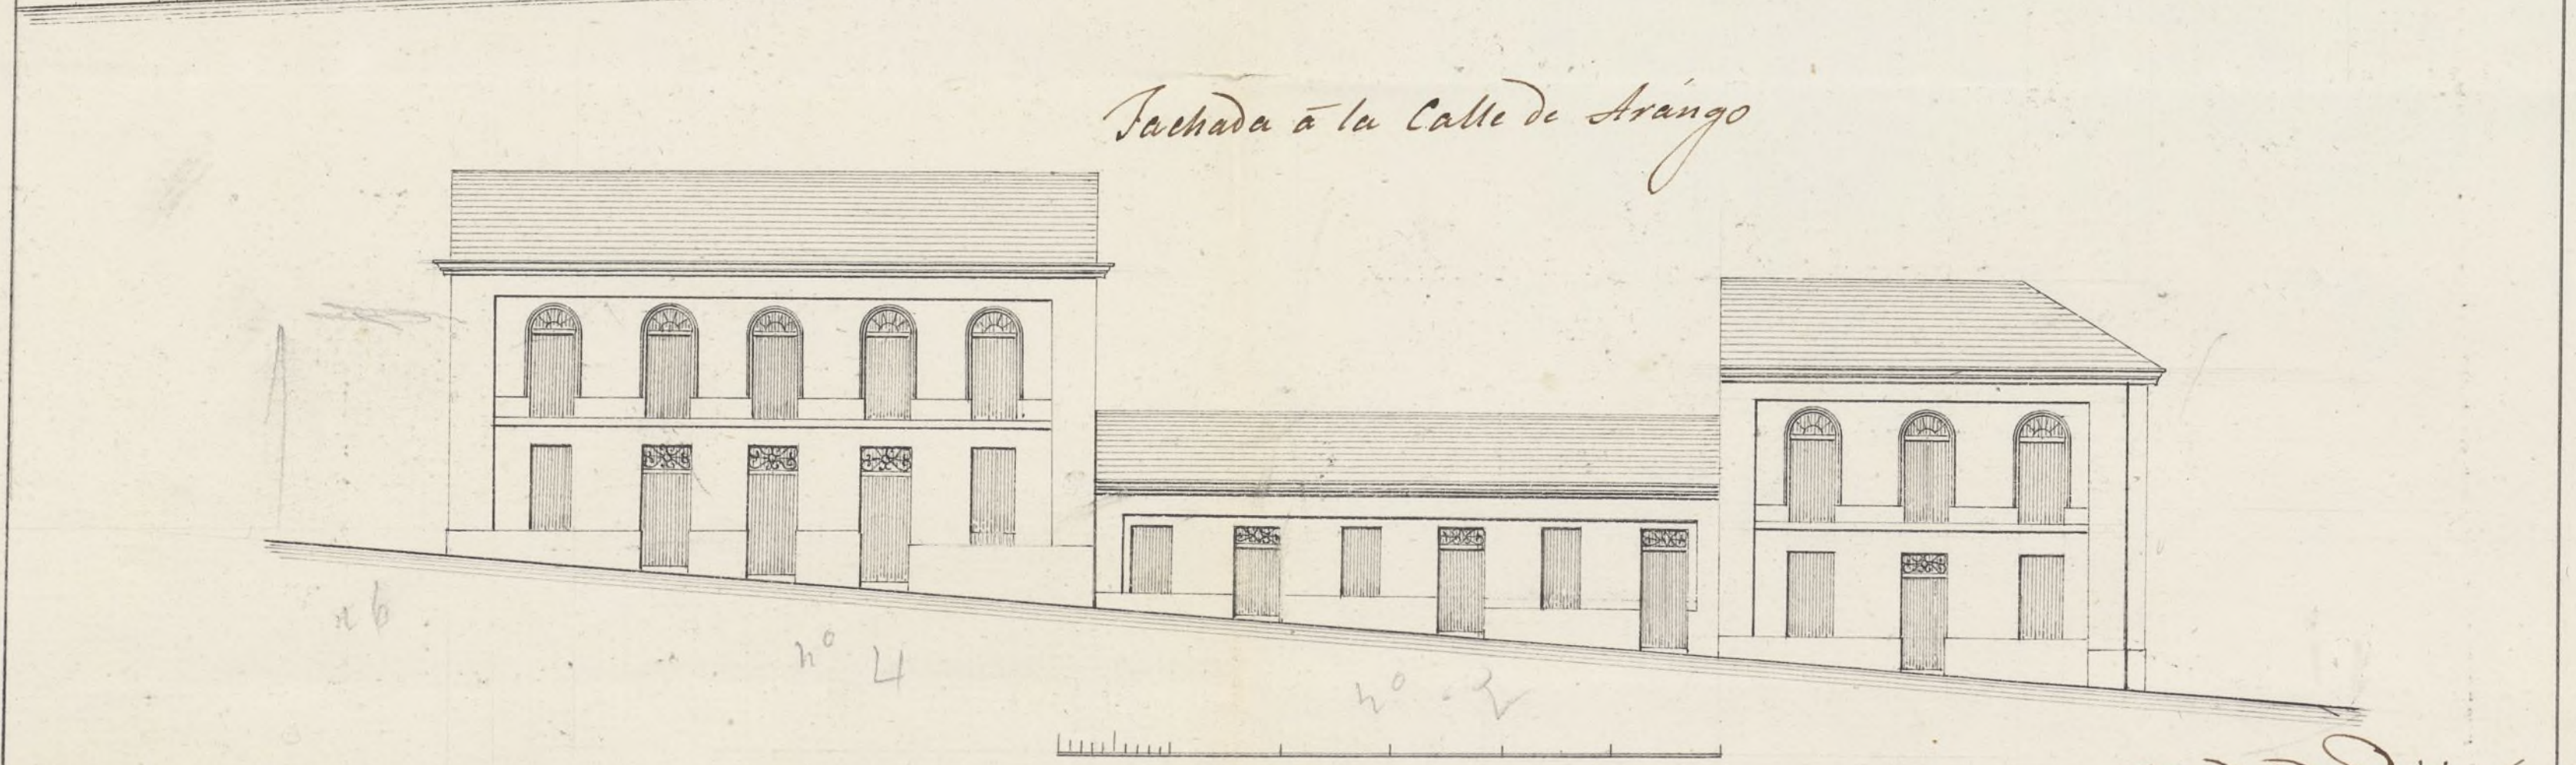 Fachada á la Calle de Arángo
n 6
nº 4
nº 2